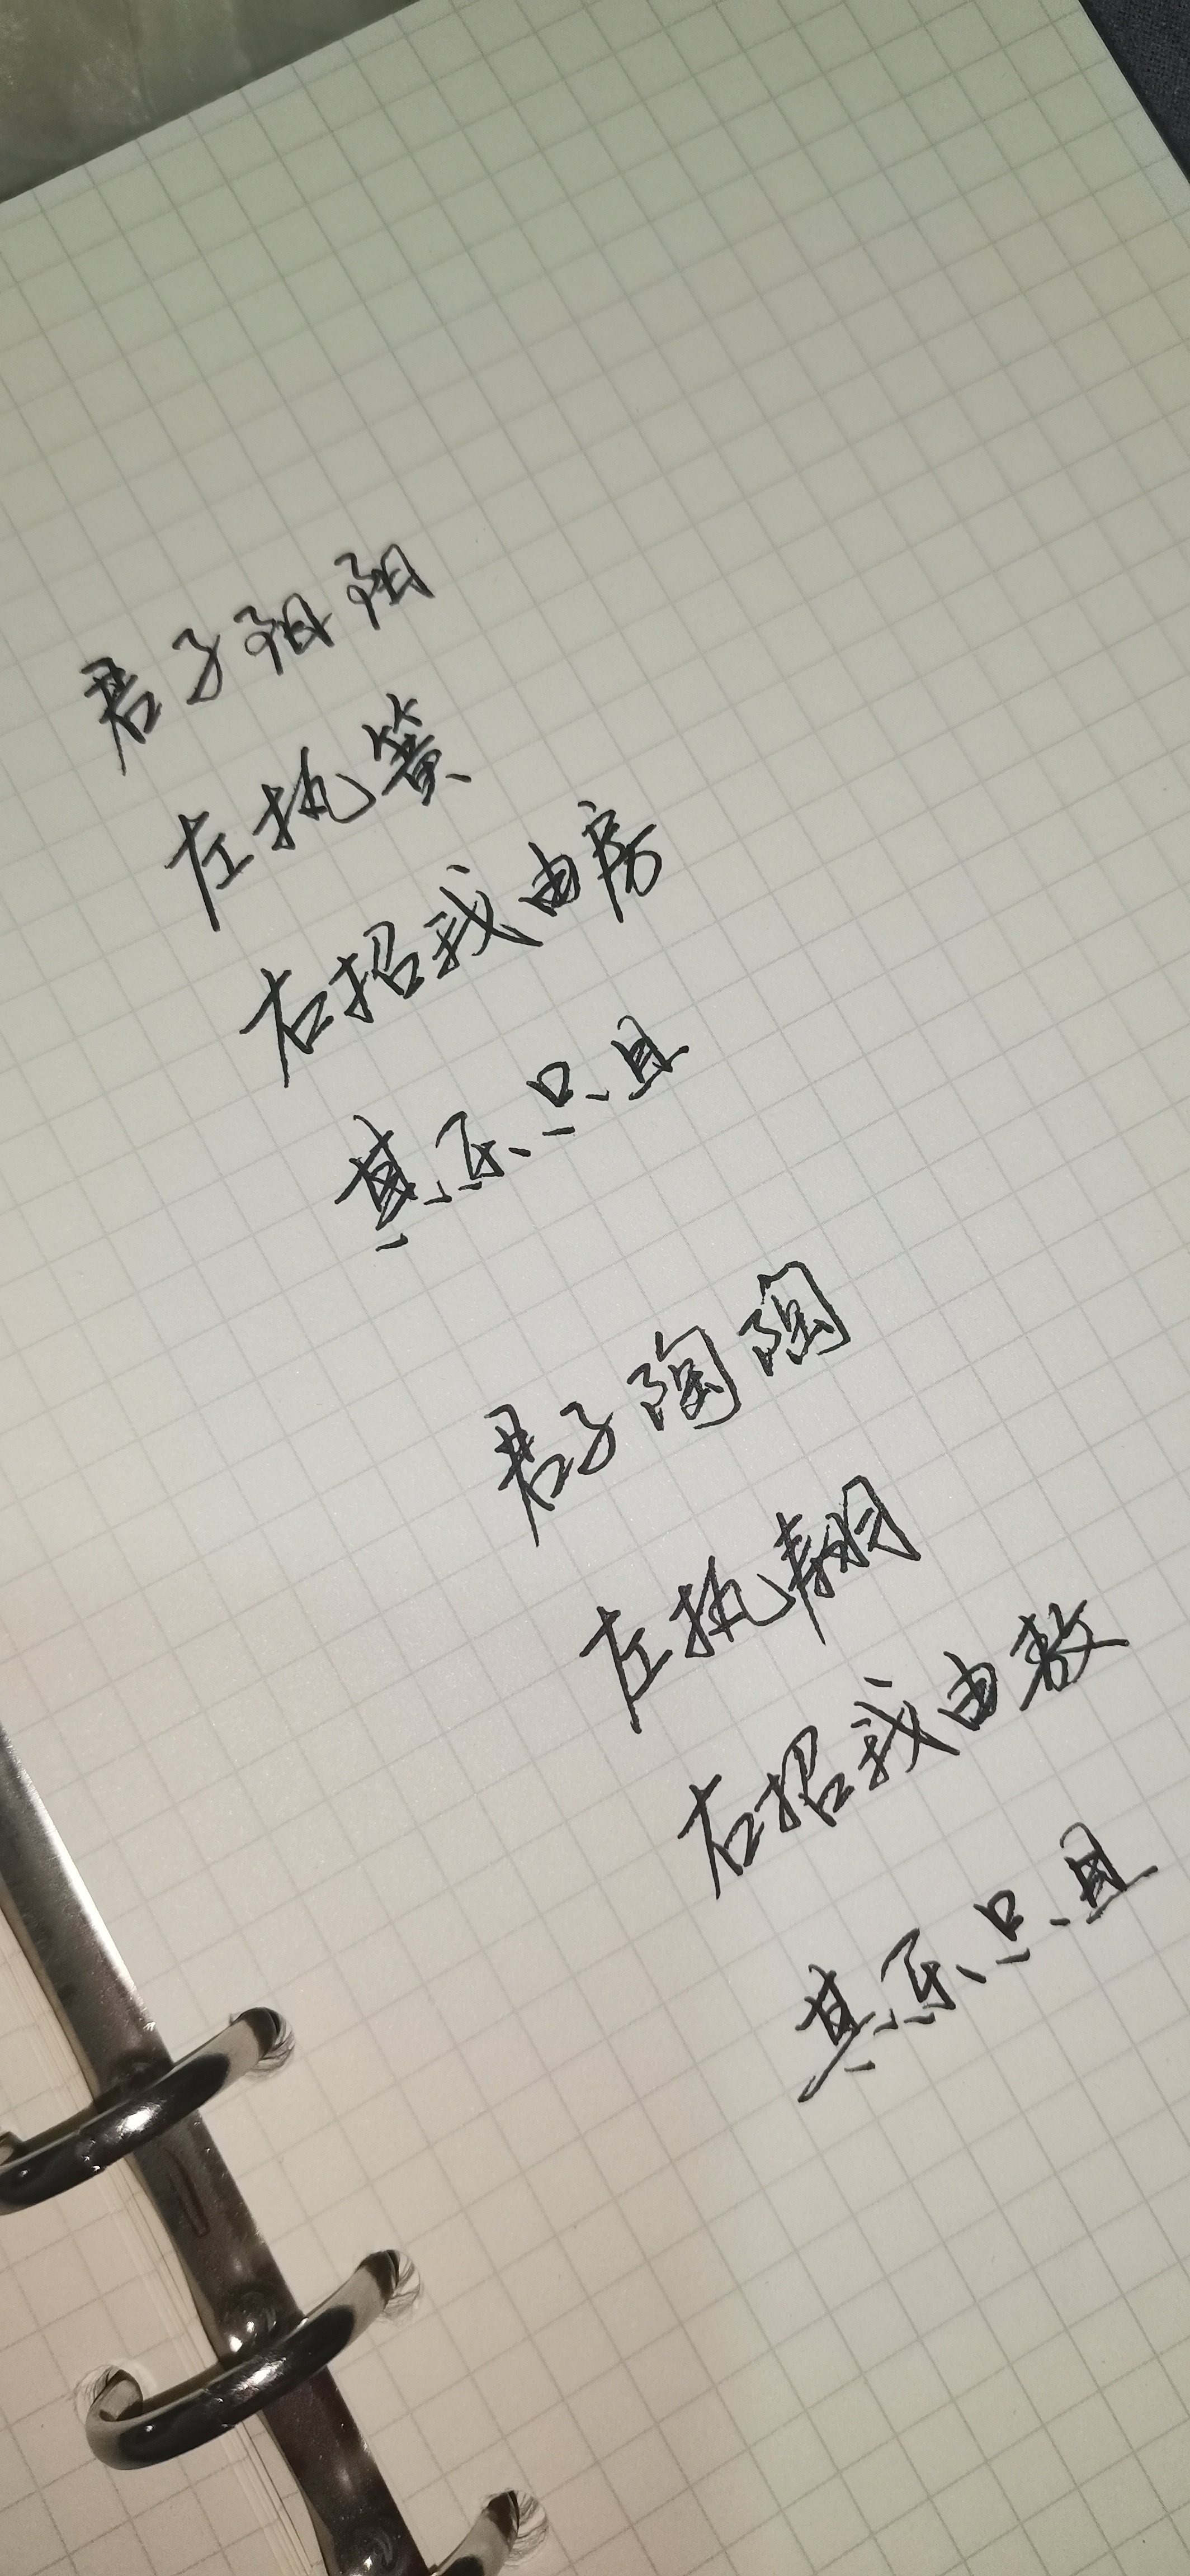 君子阳阳
左执簧
右招我由房
其乐只且
君子陶陶
左执翿
右招我由敖
其乐只且